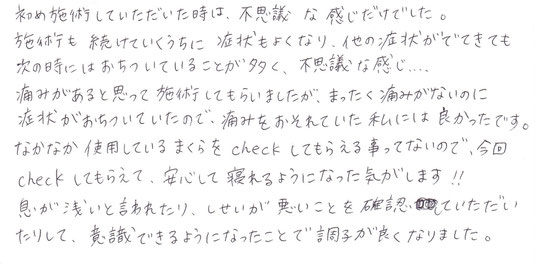 初め施術していただいた時は、不思議な感じだけでした。
施術も続けていくうちに症状もよくなり、他の症状がでてきても
次の時にはおちついていることが多く、不思議な感じ….
痛みがあると思って施術してもらいましたが、まったく痛みがないのに
症状がおちついていたので、痛みをおそれていた私には良かったです。
なかなか使用しているまくらをcheckしてもらえる事ってないので、今回
checkしてもらえて、安心して寝れるようになった気がします!!
息が浅いと言われたり、しせいが悪いことを確認していただい
たりして、意識できるようになったことで調子が良くなりました。